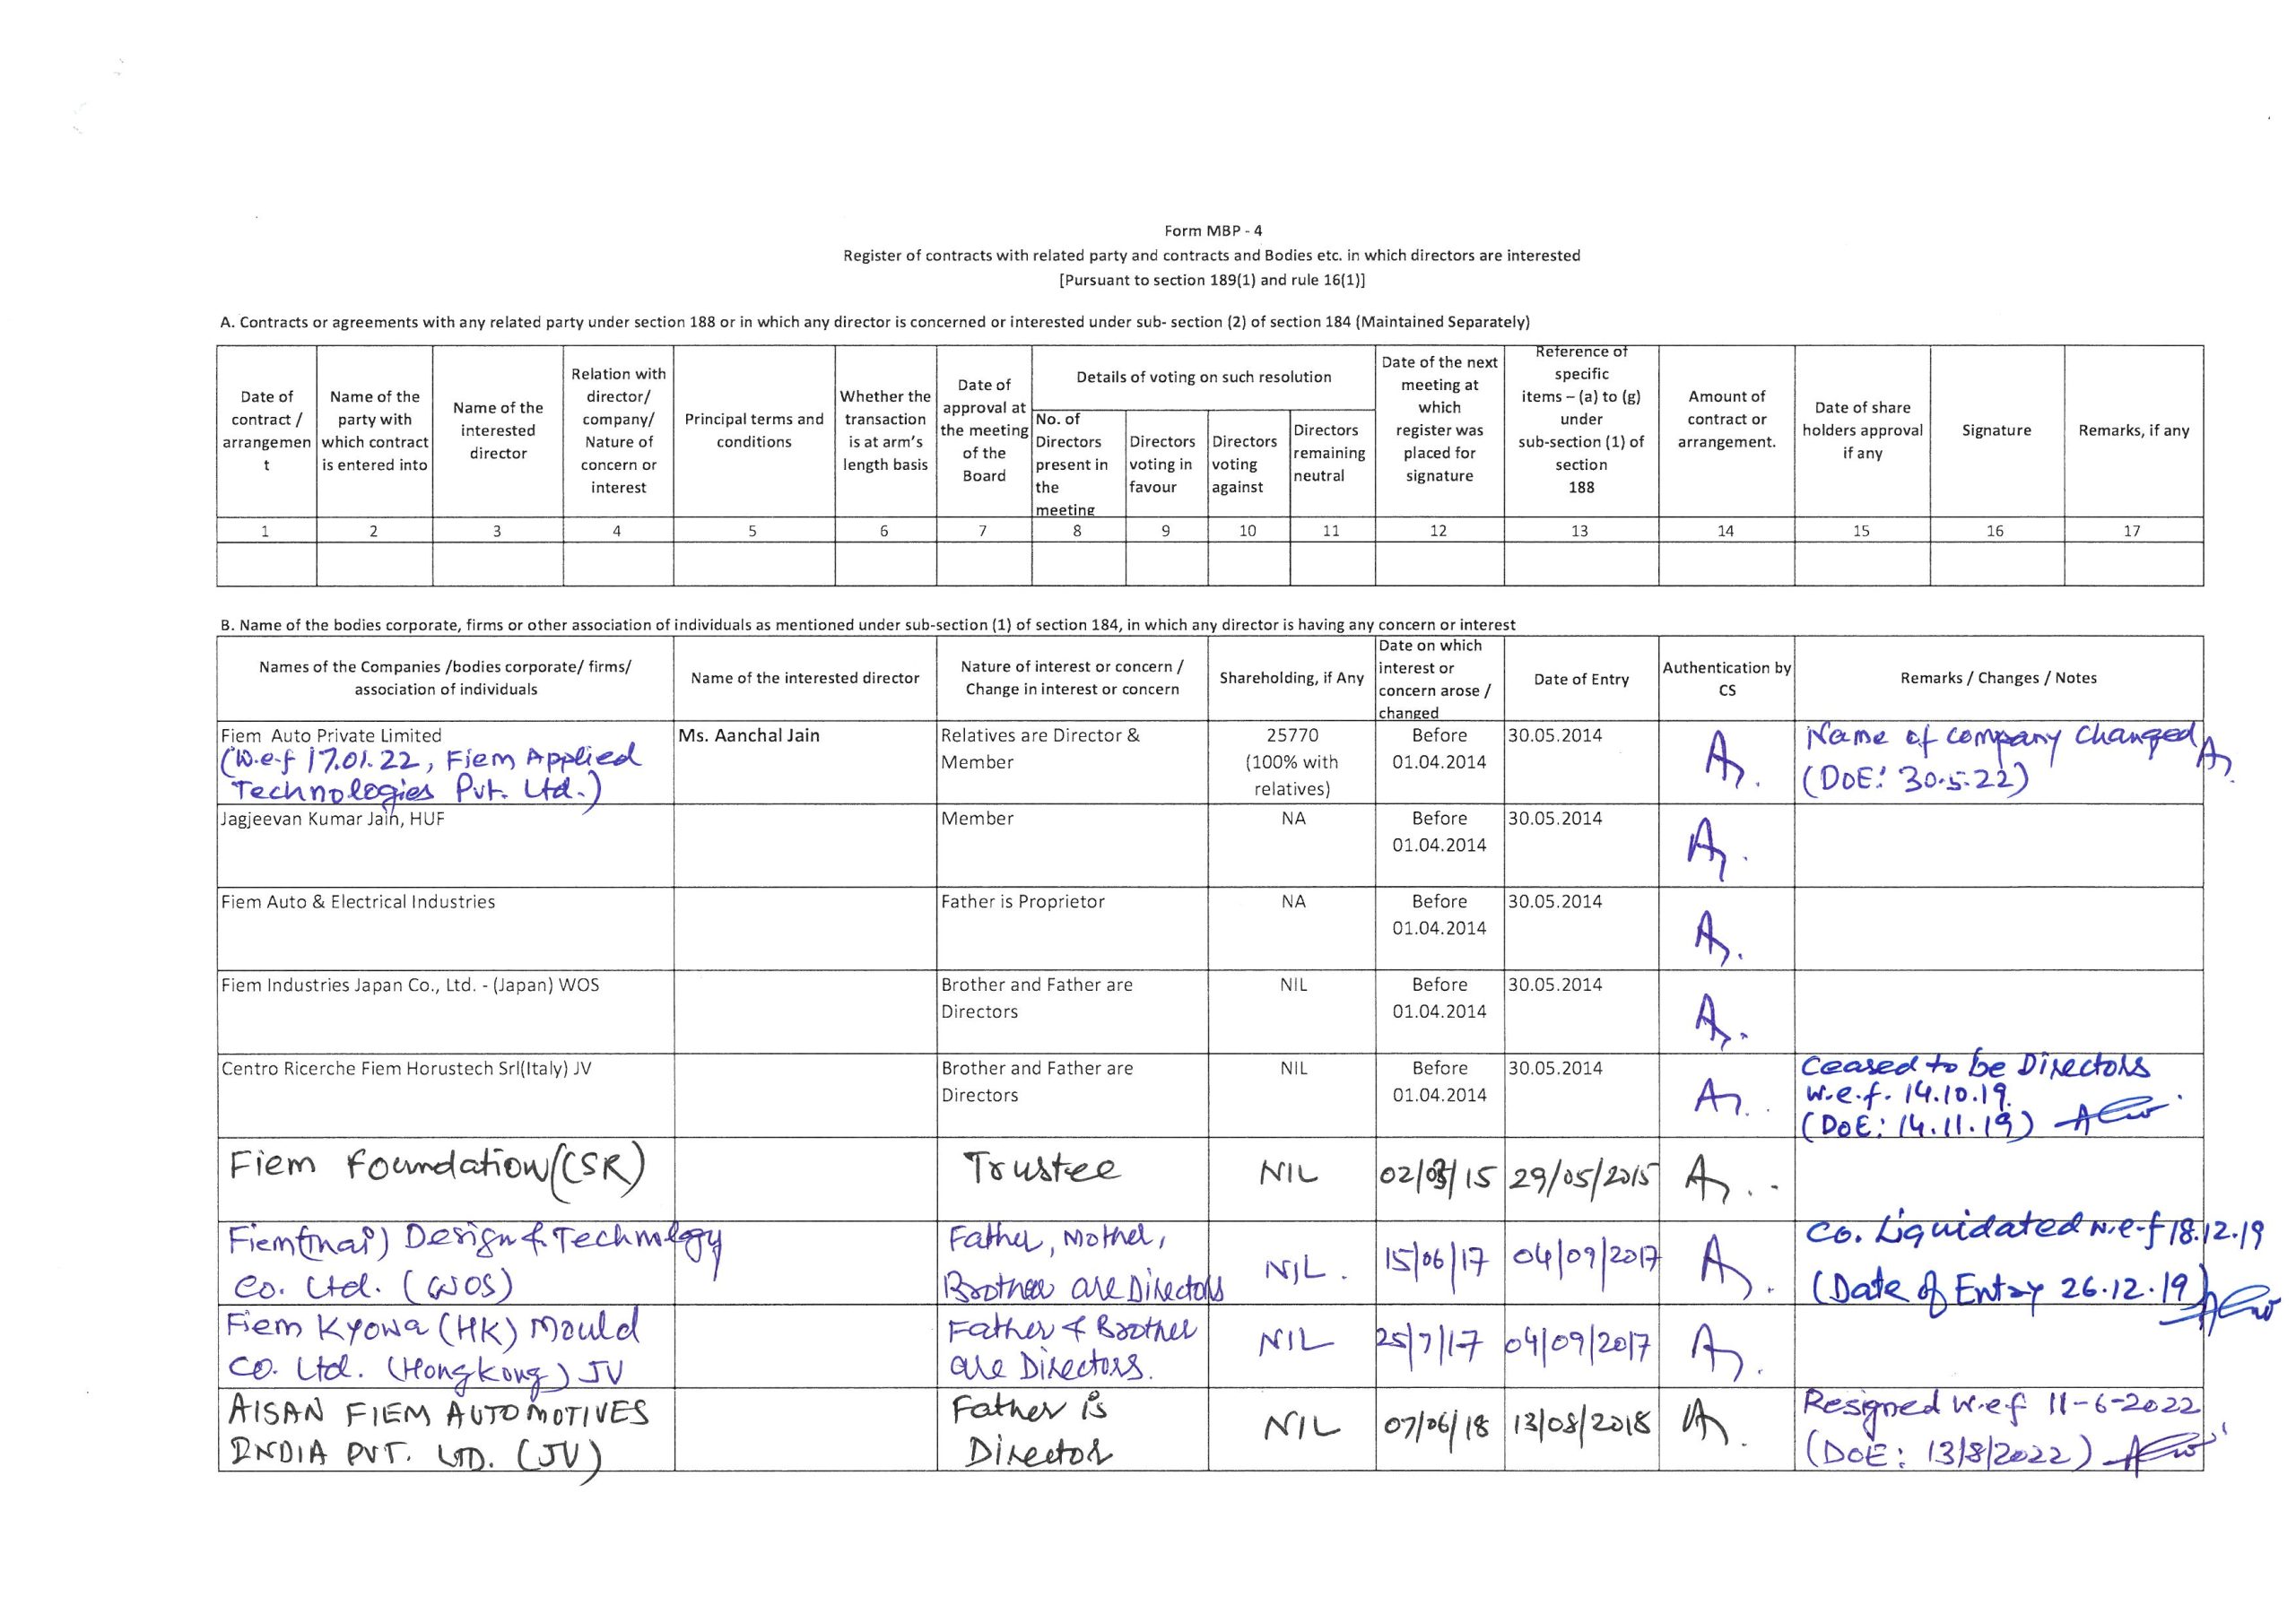 Form MBP - 4
Register of contracts with related party and contracts and Bodies etc. in which directors are interested
[Pursuant to section 189(1) and rule 16(1)]
A. Contracts or agreements with any related party under section 188 or in which any director is concerned or interested under sub- section (2) of section 184 (Maintained Separately)
Date of
contract /
arrangemen
t
Name of the
party with
which contract
is entered into
Name of the
interested
director
Relation with
director/
company/
Nature of
concern or
interest
Principal terms and
conditions
Whether the
transaction
is at arm's
length basis
Date of
approval at
the meeting
of the
Board
Details of voting on such resolution
No. of
Directors
present in
the
meeting
Directors
voting in
favour
Directors
voting
against
Directors
remaining
neutral
Date of the next
meeting at
which
register was
placed for
signature
Reference of
specific
items – (a) to (g)
under
sub-section (1) of
section
188
Amount of
contract or
arrangement.
Date of share
holders approval
if any
Signature
Remarks, if any
1 2 3 4 5 6 7 8 9 10 11 12 13 14 15 16 17
B. Name of the bodies corporate, firms or other association of individuals as mentioned under sub-section (1) of section 184, in which any director is having any concern or interest
Names of the Companies /bodies corporate/ firms/
association of individuals
Name of the interested director
Nature of interest or concern /
Change in interest or concern
Shareholding, if Any
Date on which
interest or
concern arose /
changed
Date of Entry
Authentication by
CS
Remarks / Changes / Notes
Fiem Auto Private Limited
(W.e.f 17.01.22, Fiem Applied
Technologies Pvt. Ltd.)
Ms. Aanchal Jain
Relatives are Director &
Member
25770
(100% with
relatives)
Before
01.04.2014
30.05.2014
Name of company changed
(DoE: 30.5.22)
Jagjeevan Kumar Jain, HUF
Member
NA
Before
01.04.2014
30.05.2014
Fiem Auto & Electrical Industries
Father is Proprietor
NA
Before
01.04.2014
30.05.2014
Fiem Industries Japan Co., Ltd. - (Japan) WOS
Brother and Father are
Directors
NIL
Before
01.04.2014
30.05.2014
Centro Ricerche Fiem Horustech Srl(Italy) JV
Brother and Father are
Directors
NIL
Before
01.04.2014
30.05.2014
Ceased to be Directors
w.e.f. 14.10.19.
(DoE: 14.11.19)
Fiem Foundation (CSR)
Trustee
NIL
02/03/15
29/05/2015
Design & Technology
Co. Ltd. (WOS)
Father, Mother,
Brother are Directors
NIL.
15/06/17
04/09/2017
Co. Liquidated w.e.f 18.12.19
(Date of Entry 26.12.19)
Fiem Kyowa (HK) Mould
Co. Ltd. (Hongkong) JV
Father & Brother
are Directors.
NIL
25/7/17
04/09/2017
AISAN FIEM AUTOMOTIVES
INDIA PVT. LTD. (JV)
Father is
Director
NIL
07/06/18
13/08/2018
Resigned w.e.f 11-6-2022
(DoE: 13/8/2022)